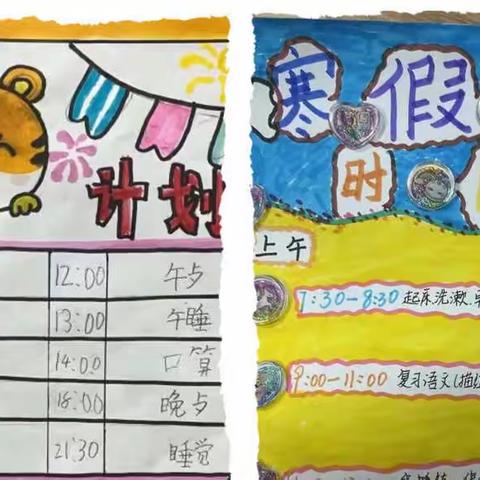 计划
12:00 午歺
13:00 午睡
14:00 口算
18:00 晚歺
21:30 睡觉
寒假
时
上午
7:30-8:30 起床洗漱.
9:00-11:00 复习语文(描